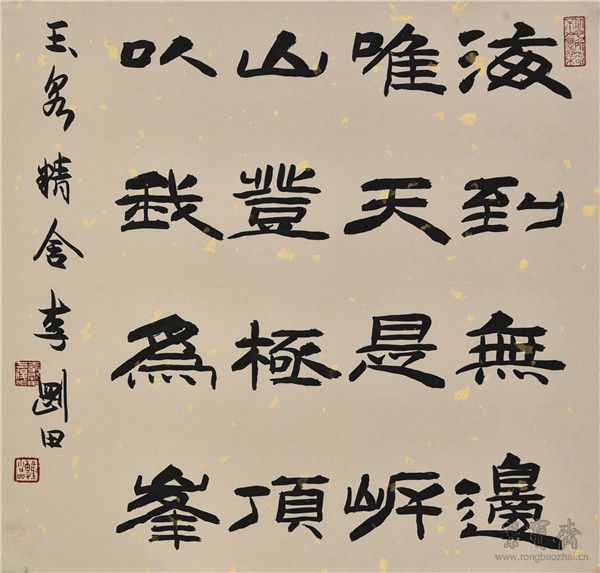 海到無邊
唯天是岸
山登極頂
以我爲峯
玉泉精舍李剛田
榮寶齋
www.rongbaozhai.cn